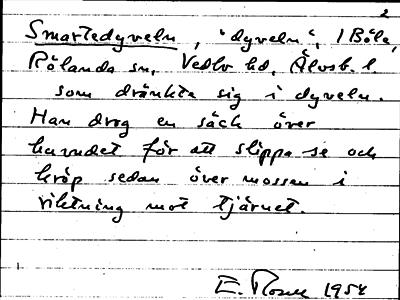 2
Smartedyveln, "dyveln", i Böle,
Rölanda sn, Vedbo hd, Älvsb. l.
som dränkte sig i dyveln.
Han drog en säck över
huvudet för att slippa se och
kröp sedan över mossen i
riktning mot tjärnet.
E. 1954